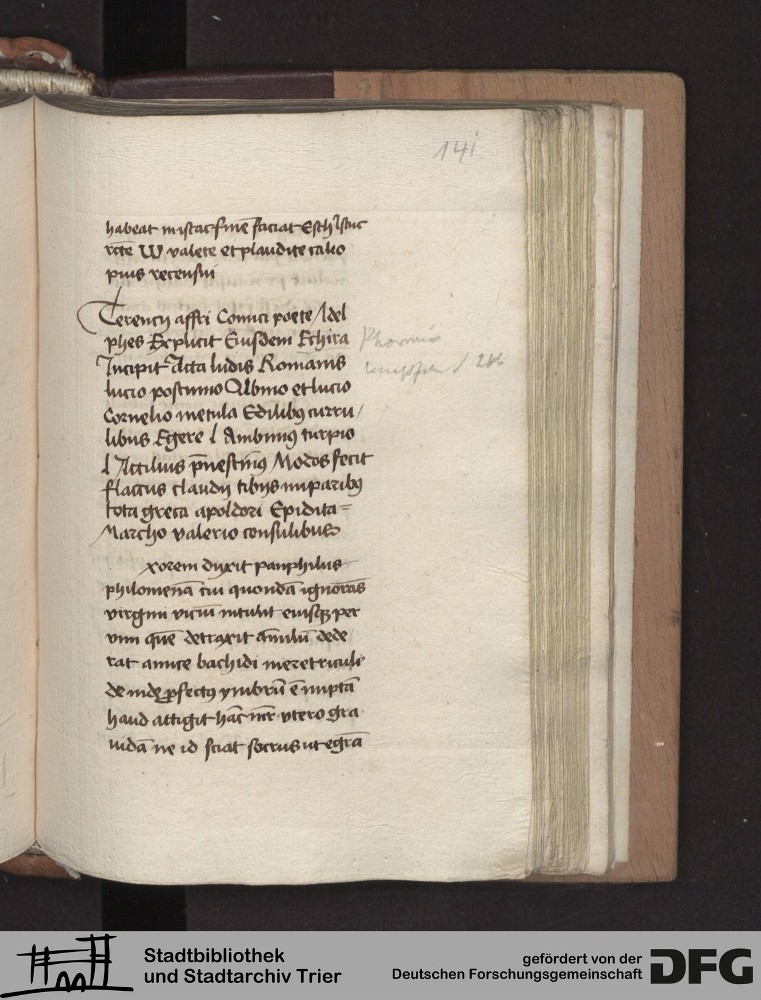 141
habeat in istac finē faciat Esch Istuc
rcte W valete et plaudite calio
pius recensui
Terencij affri Comici poete Adel
phes Explicit Eusdem Echira
Incipit Acta ludis Romanis
lucio postumo Albino et lucio
Cornelio metula Edilibꝯ curru
libus Egere l Ambiniꝯ turpio
l Actilius p̄nestiniꝯ Modos fecit
flaccus claudij tibijs imparibꝯ
tota greca apoldori Epidita=
Marcho valerio consulibus
xorem duxit panphilus
philomenā cui quondā ignorās
virgini viciū intulit cuiusqꝫ per
vim quē detraxit anulū dede
rat amice bachidi meretricule
de inde ꝓfectꝯ ymbrū ē nuptā
haud attigit hāc mr̄ utero gra
uidā ne id sciat socrus ut egrā
Phormio
286
Stadtbibliothek
und Stadtarchiv Trier
gefördert von der
Deutschen Forschungsgemeinschaft
DFG